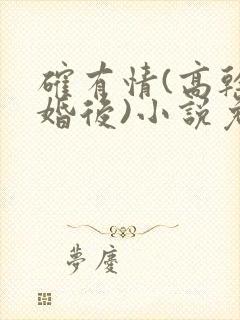 確有情(高幹
婚後)小說
夢慶